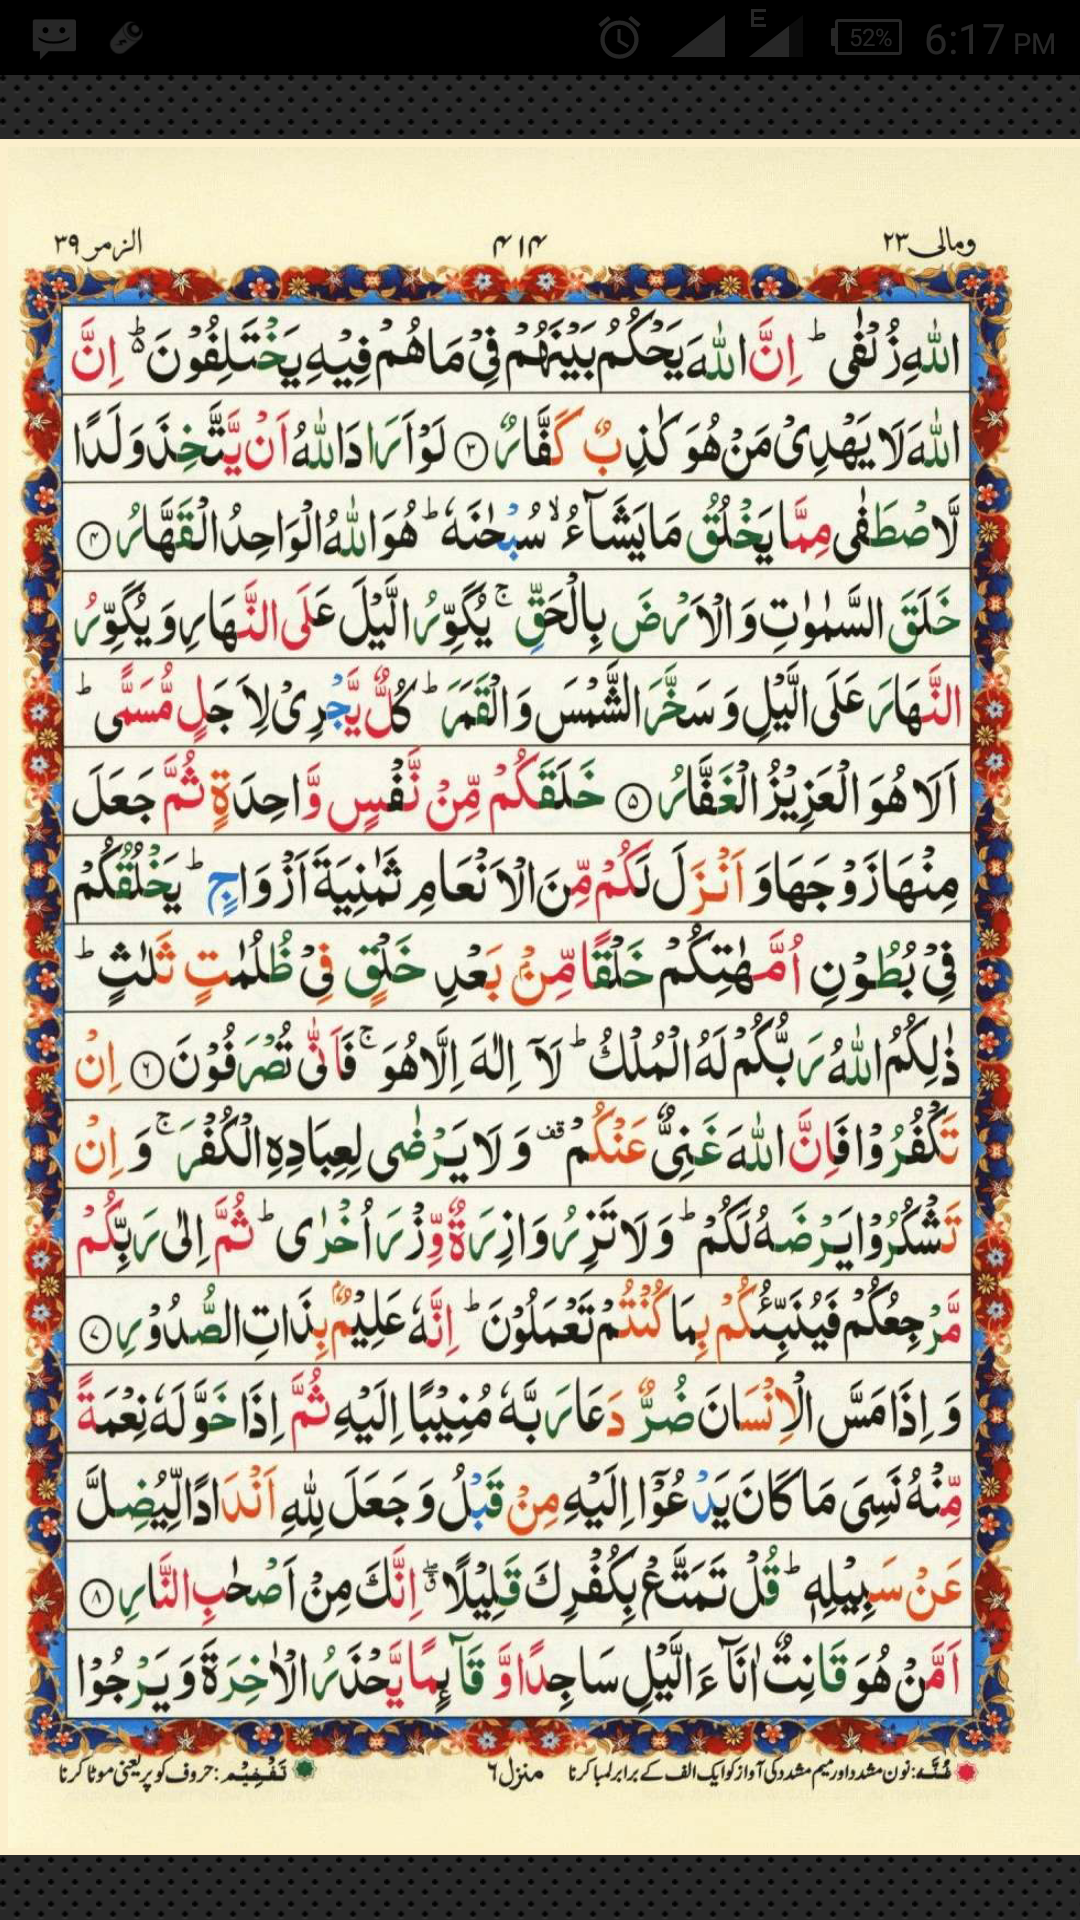 E
52%
6:17 PM
ومالی ۲۳
۴۱۴
الزمر ۳۹
اللّٰهِ زُلْفٰی ؕ اِنَّ اللّٰهَ یَحْكُمُ بَیْنَهُمْ فِیْ مَا هُمْ فِیْهِ یَخْتَلِفُوْنَ ؕ۬ اِنَّ
اللّٰهَ لَا یَهْدِیْ مَنْ هُوَ كٰذِبٌ كَفَّارٌ ۳ لَوْ اَرَادَ اللّٰهُ اَنْ یَّتَّخِذَ وَلَدًا
لَّاصْطَفٰی مِمَّا یَخْلُقُ مَا یَشَآءُ ۙ سُبْحٰنَهٗ ؕ هُوَ اللّٰهُ الْوَاحِدُ الْقَهَّارُ ۴
خَلَقَ السَّمٰوٰتِ وَ الْاَرْضَ بِالْحَقِّ ۚ یُكَوِّرُ الَّیْلَ عَلَی النَّهَارِ وَ یُكَوِّرُ
النَّهَارَ عَلَی الَّیْلِ وَ سَخَّرَ الشَّمْسَ وَ الْقَمَرَ ؕ كُلٌّ یَّجْرِیْ لِاَجَلٍ مُّسَمًّی ؕ
اَلَا هُوَ الْعَزِیْزُ الْغَفَّارُ ۵ خَلَقَكُمْ مِّنْ نَّفْسٍ وَّاحِدَةٍ ثُمَّ جَعَلَ
مِنْهَا زَوْجَهَا وَ اَنْزَلَ لَكُمْ مِّنَ الْاَنْعَامِ ثَمٰنِیَةَ اَزْوَاجٍ ؕ یَخْلُقُكُمْ
فِیْ بُطُوْنِ اُمَّهٰتِكُمْ خَلْقًا مِّنْۢ بَعْدِ خَلْقٍ فِیْ ظُلُمٰتٍ ثَلٰثٍ ؕ
ذٰلِكُمُ اللّٰهُ رَبُّكُمْ لَهُ الْمُلْكُ ؕ لَاۤ اِلٰهَ اِلَّا هُوَ ۚ فَاَنّٰی تُصْرَفُوْنَ ۶ اِنْ
تَكْفُرُوْا فَاِنَّ اللّٰهَ غَنِیٌّ عَنْكُمْ قف وَ لَا یَرْضٰی لِعِبَادِهِ الْكُفْرَ ۚ وَ اِنْ
تَشْكُرُوْا یَرْضَهُ لَكُمْ ؕ وَ لَا تَزِرُ وَازِرَةٌ وِّزْرَ اُخْرٰی ؕ ثُمَّ اِلٰی رَبِّكُمْ
مَّرْجِعُكُمْ فَیُنَبِّئُكُمْ بِمَا كُنْتُمْ تَعْمَلُوْنَ ؕ اِنَّهٗ عَلِیْمٌۢ بِذَاتِ الصُّدُوْرِ ۷
وَ اِذَا مَسَّ الْاِنْسَانَ ضُرٌّ دَعَا رَبَّهٗ مُنِیْبًا اِلَیْهِ ثُمَّ اِذَا خَوَّلَهٗ نِعْمَةً
مِّنْهُ نَسِیَ مَا كَانَ یَدْعُوْۤا اِلَیْهِ مِنْ قَبْلُ وَ جَعَلَ لِلّٰهِ اَنْدَادًا لِّیُضِلَّ
عَنْ سَبِیْلِهٖ ؕ قُلْ تَمَتَّعْ بِكُفْرِكَ قَلِیْلًا ۖۗ اِنَّكَ مِنْ اَصْحٰبِ النَّارِ ۸
اَمَّنْ هُوَ قَانِتٌ اٰنَآءَ الَّیْلِ سَاجِدًا وَّ قَآئِمًا یَّحْذَرُ الْاٰخِرَةَ وَ یَرْجُوْا
غُنَّه: نون مشدد اور میم مشدد کی آواز کو ایک الف کے برابر لمبا کرنا
منزل ۶
تَفْخِیْم: حروف کو پُر یعنی موٹا کرنا